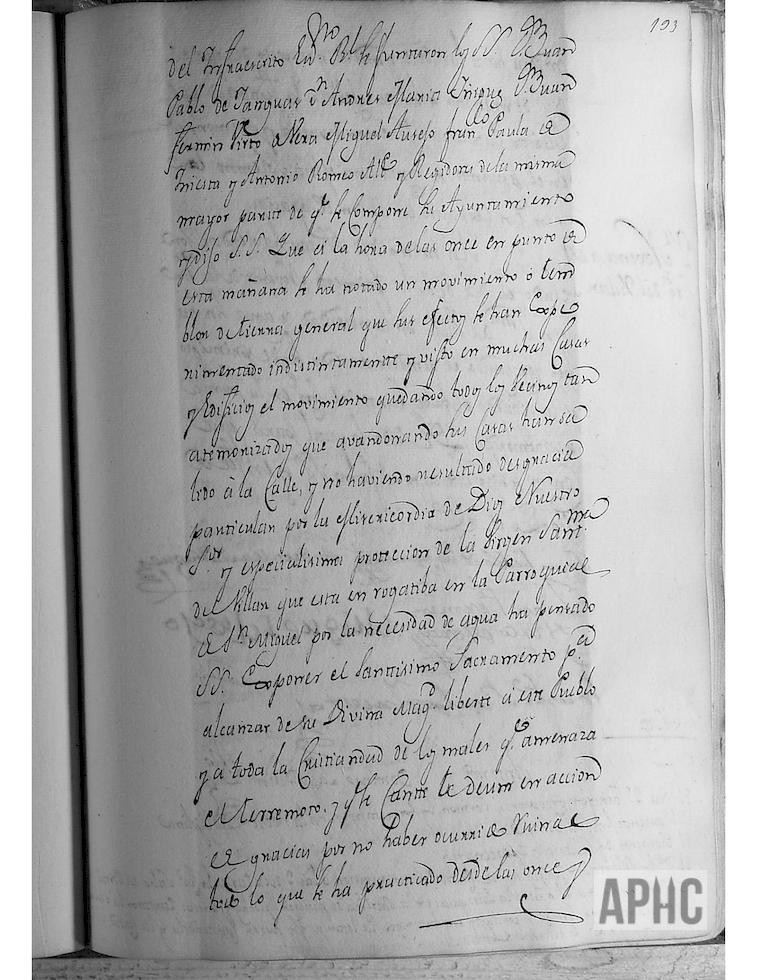 193
del Infraescrito Esno. Rl. se juntaron los SS. Dn. Juan
Pablo de Dn. Andres Maria Dn. Juan
fermin Virto de Vera Miguel Franco. Paula de
Iniesta y Antonio Romeo Alce. y Regidores de la misma
mayor parte de qe. se compone su Ayuntamiento
y dijo S.S. Que a la hora de las once en punto de
esta mañana se ha notado un movimiento o tem
blor de tierra general que sus efectos se han Expe
rimentado indistintamente y visto en muchas Casas
y Edificios el movimiento quedando todos los Vecinos tan
atemorizados que avandonando sus Casas han sa
lido à la Calle, y no haviendo resultado desgracia
particular por la Misericordia de Dios Nuestro
Sor. y especialisima proteccion de la Virgen Santma.
del Villar que esta en rogatiba en la Parroquial
de Sn. Miguel por la necesidad de agua ha pensado
SS. Exponer el Santisimo Sacramento pa.
alcanzar de su Divina Magd. liberte à este Pueblo
y a toda la Cristiandad de los males qe. amenaza
el terremoto, y qe. se Cante Te deum en accion
de gracias por no haber ocurrido Ruina
todo lo que se ha practicado desde las once y
APHC